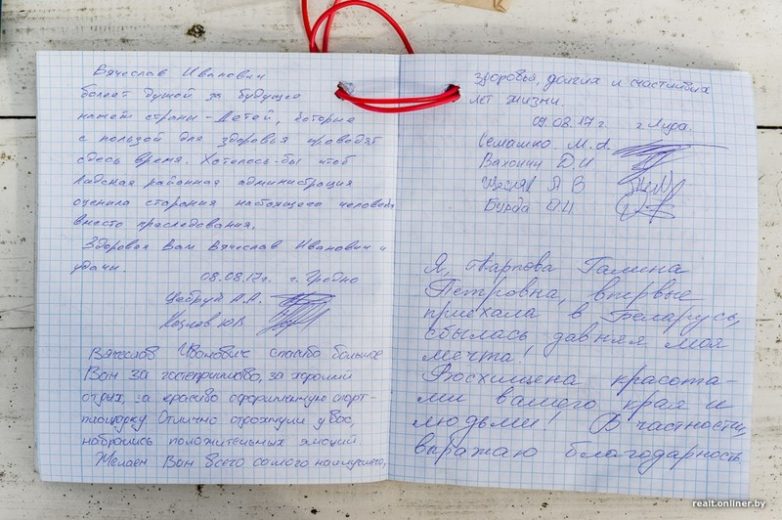 Вячеслав Иванович
болеет душой за будущее
нашей страны - Детей, которые
с пользой для здоровья проводят
сдесь время. Хотелось-бы чтоб
Лидская районная администрация
оценила старания настоящего человека
вместо преследования.
Здоровья Вам Вячеслав Иванович и
удачи.
08.08.17г. г. Гродно
А.А.
Козлов Ю.В.
Вячеслав Иванович спасибо большое
Вам за гостеприимство, за хороший
отдых, за красиво оформленную спорт-
площадку Отлично отдохнули у вас,
набрались положительных эмоций
Желаем Вам всего самого наилучшего,
здоровья, долгих и счастливых
лет жизни.
09.08.17г. г. Лида.
Семашко М.А.
Д.И
В
Бурда
Я, Галина
Петровна, впервые
приехала в Беларусь,
сбылась давняя моя
мечта!
Восхищена красота-
ми вашего края и
людьми! В частности,
выражаю благодарность
realt.onliner.by